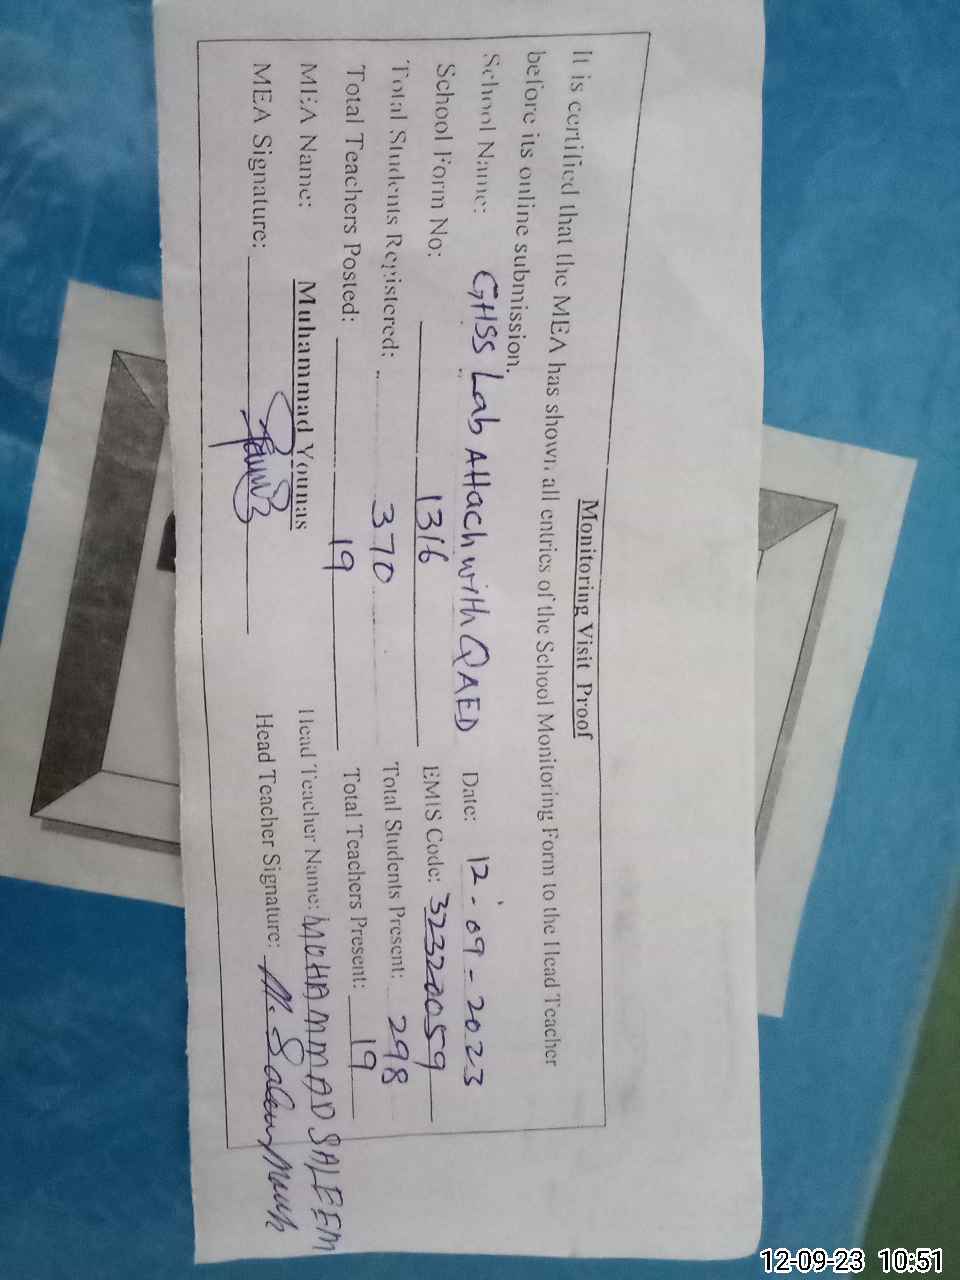 Monitoring Visit Proof
It is certified that the MEA has shown all entries of the School Monitoring Form to the Head Teacher
before its online submission.
School Name: GHSS Lab Attach with QAED Date: 12-09-2023
School Form No: 1316 EMIS Code: 32320059
Total Students Registered: 370 Total Students Present: 298
Total Teachers Posted: 19 Total Teachers Present: 19
MEA Name: Muhammad Younas Head Teacher Name: MUHAMMAD SALEEM
MEA Signature: Head Teacher Signature: M. Saleem
12-09-23 10:51